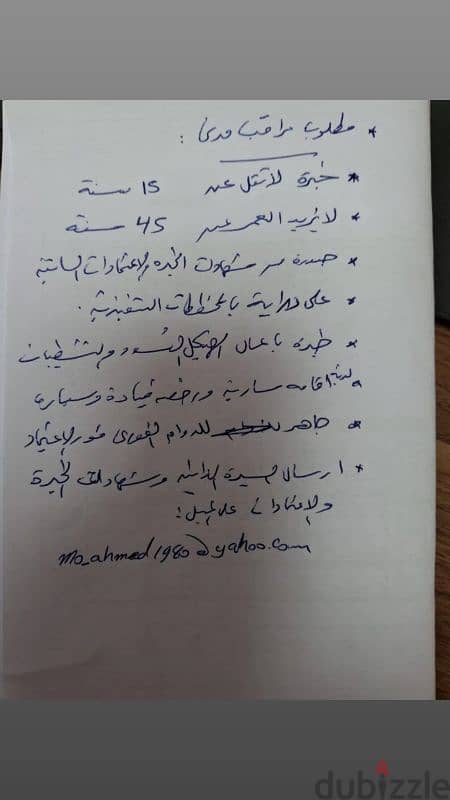 * مطلوب مراقب مدنى :
* خبرة لا تقل عن 15 سنة
* لا يزيد العمر عن 45 سنة
* صورة من شهادات الخبرة والإعتمادات السابقة
* على دراية بالمخططات التنفيذية .
* خبرة باعمال الهيكل الأسود والتشطيبات
* لديه اقامه سارية ورخصه قيادة وسيارة
* جاهز للدوام الفورى فور الإعتماد
* ارسال السيرة الذاتية وشهادات الخبرة
والإعتمادات على الميل :
mo_ahmed1980@yahoo.com
dubizzle